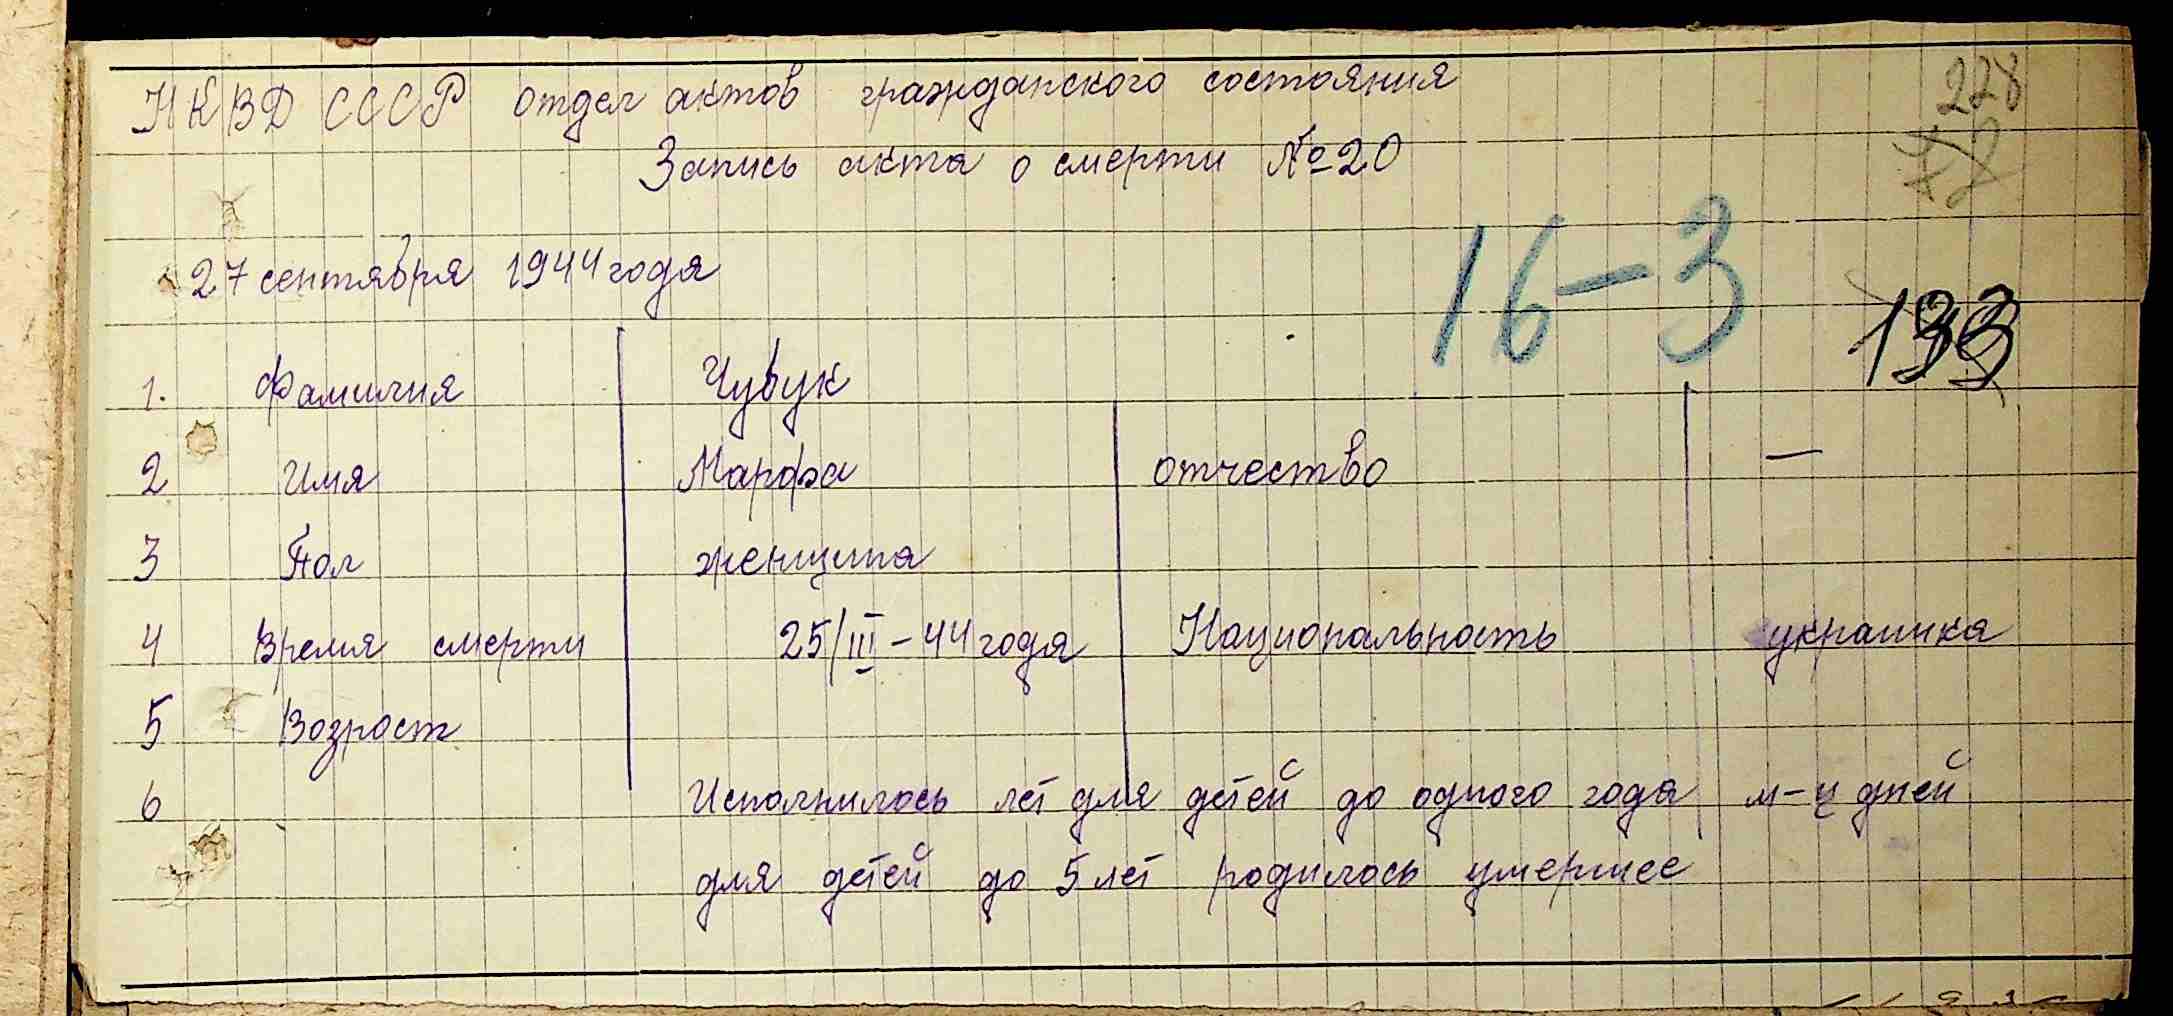 НКВД СССР отдел актов гражданского состояния
228
Запись акта о смерти №20
27 сентября 1944 года
16-3
1. Фамилия Чубук
2 Имя Марфа отчество —
3 Пол женщина
4 Время смерти 25/III-44 года Национальность украинка
5 Возрост
6 Исполнилось лет для детей до одного года м-ц дней
для детей до 5 лет родилось умершее